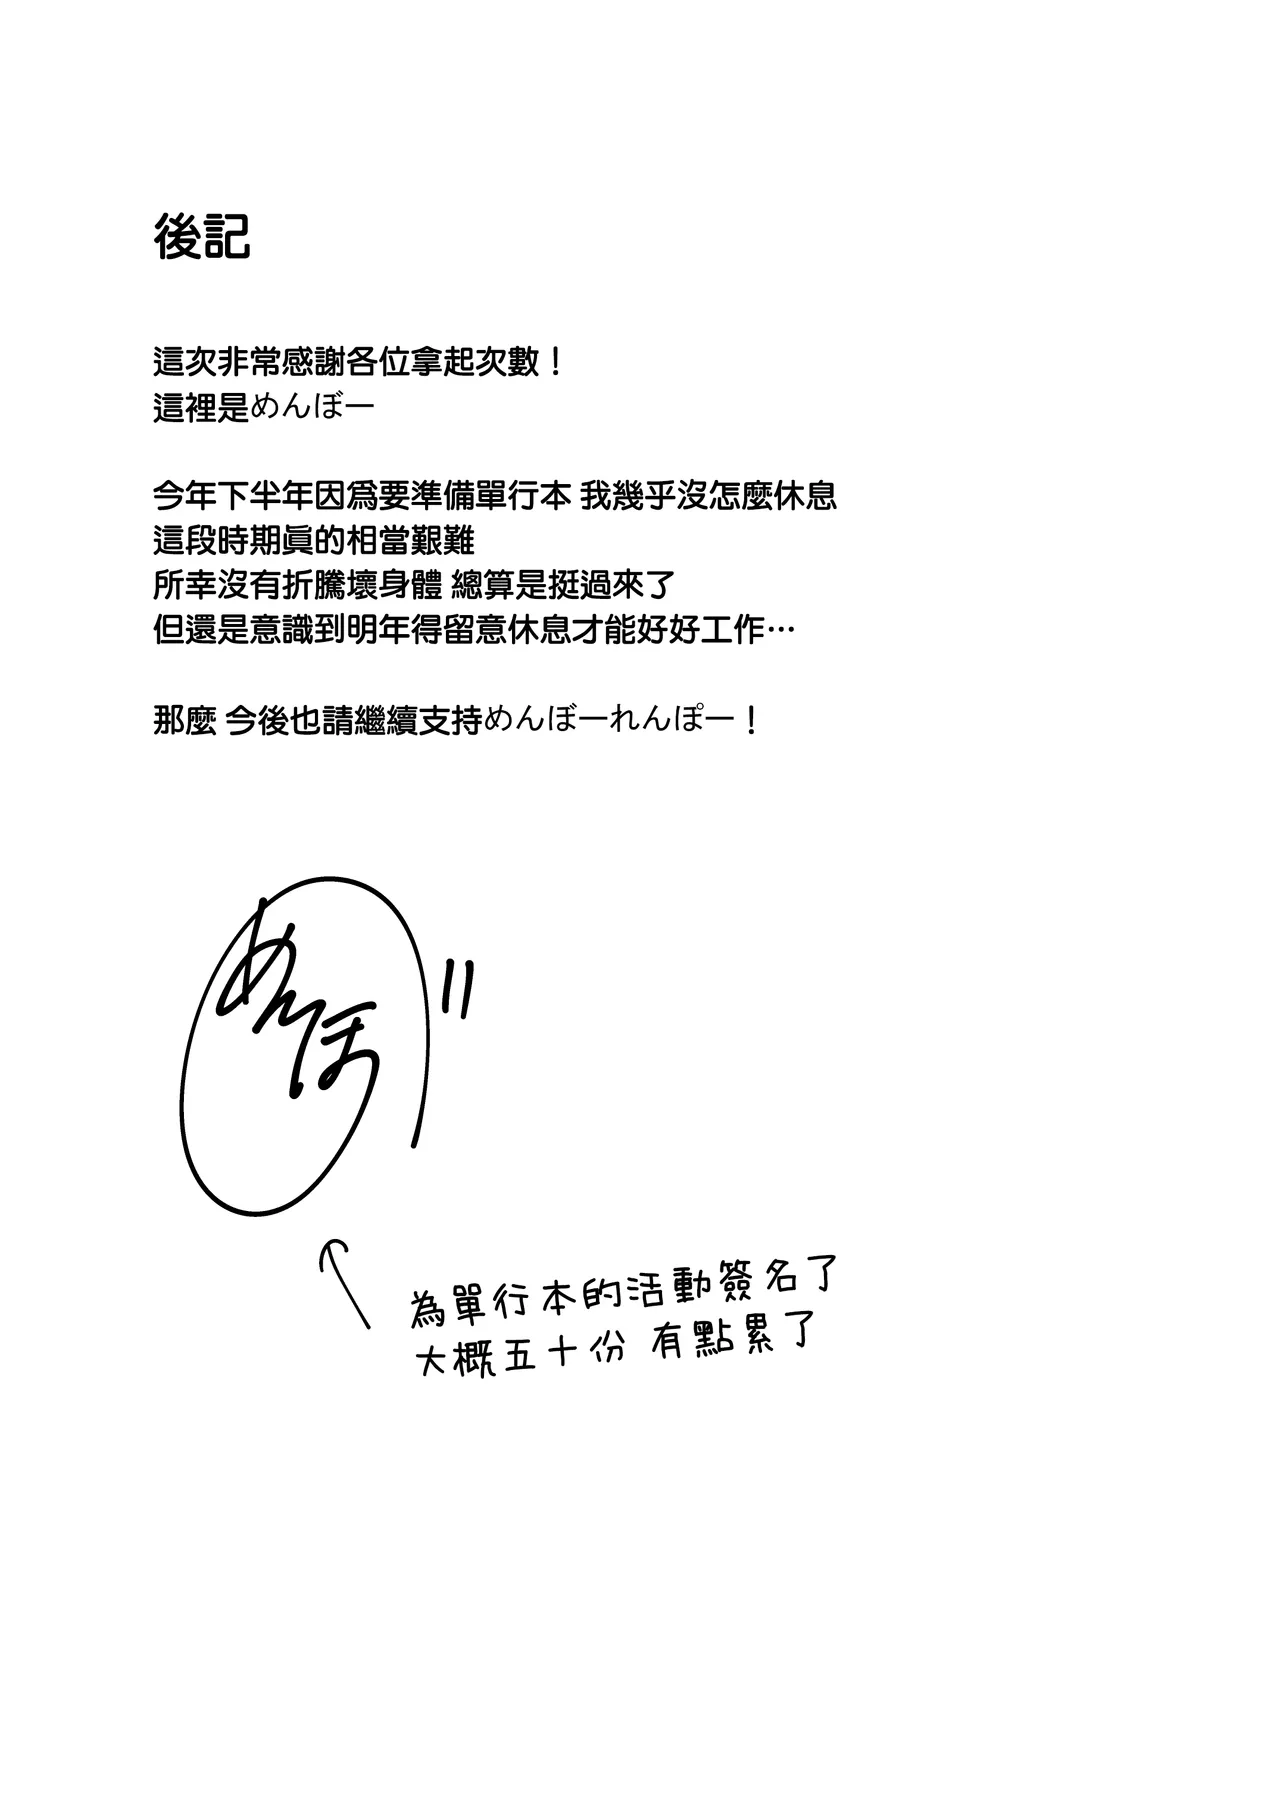 後記
這次非常感謝各位拿起次數！
這裡是めんぼー
今年下半年因爲要準備單行本 我幾乎沒怎麼休息
這段時期眞的相當艱難
所幸沒有折騰壞身體 總算是挺過來了
但還是意識到明年得留意休息才能好好工作…
那麼 今後也請繼續支持めんぼーれんぽー！
めんぼー
為單行本的活動簽名了
大概五十份 有點累了